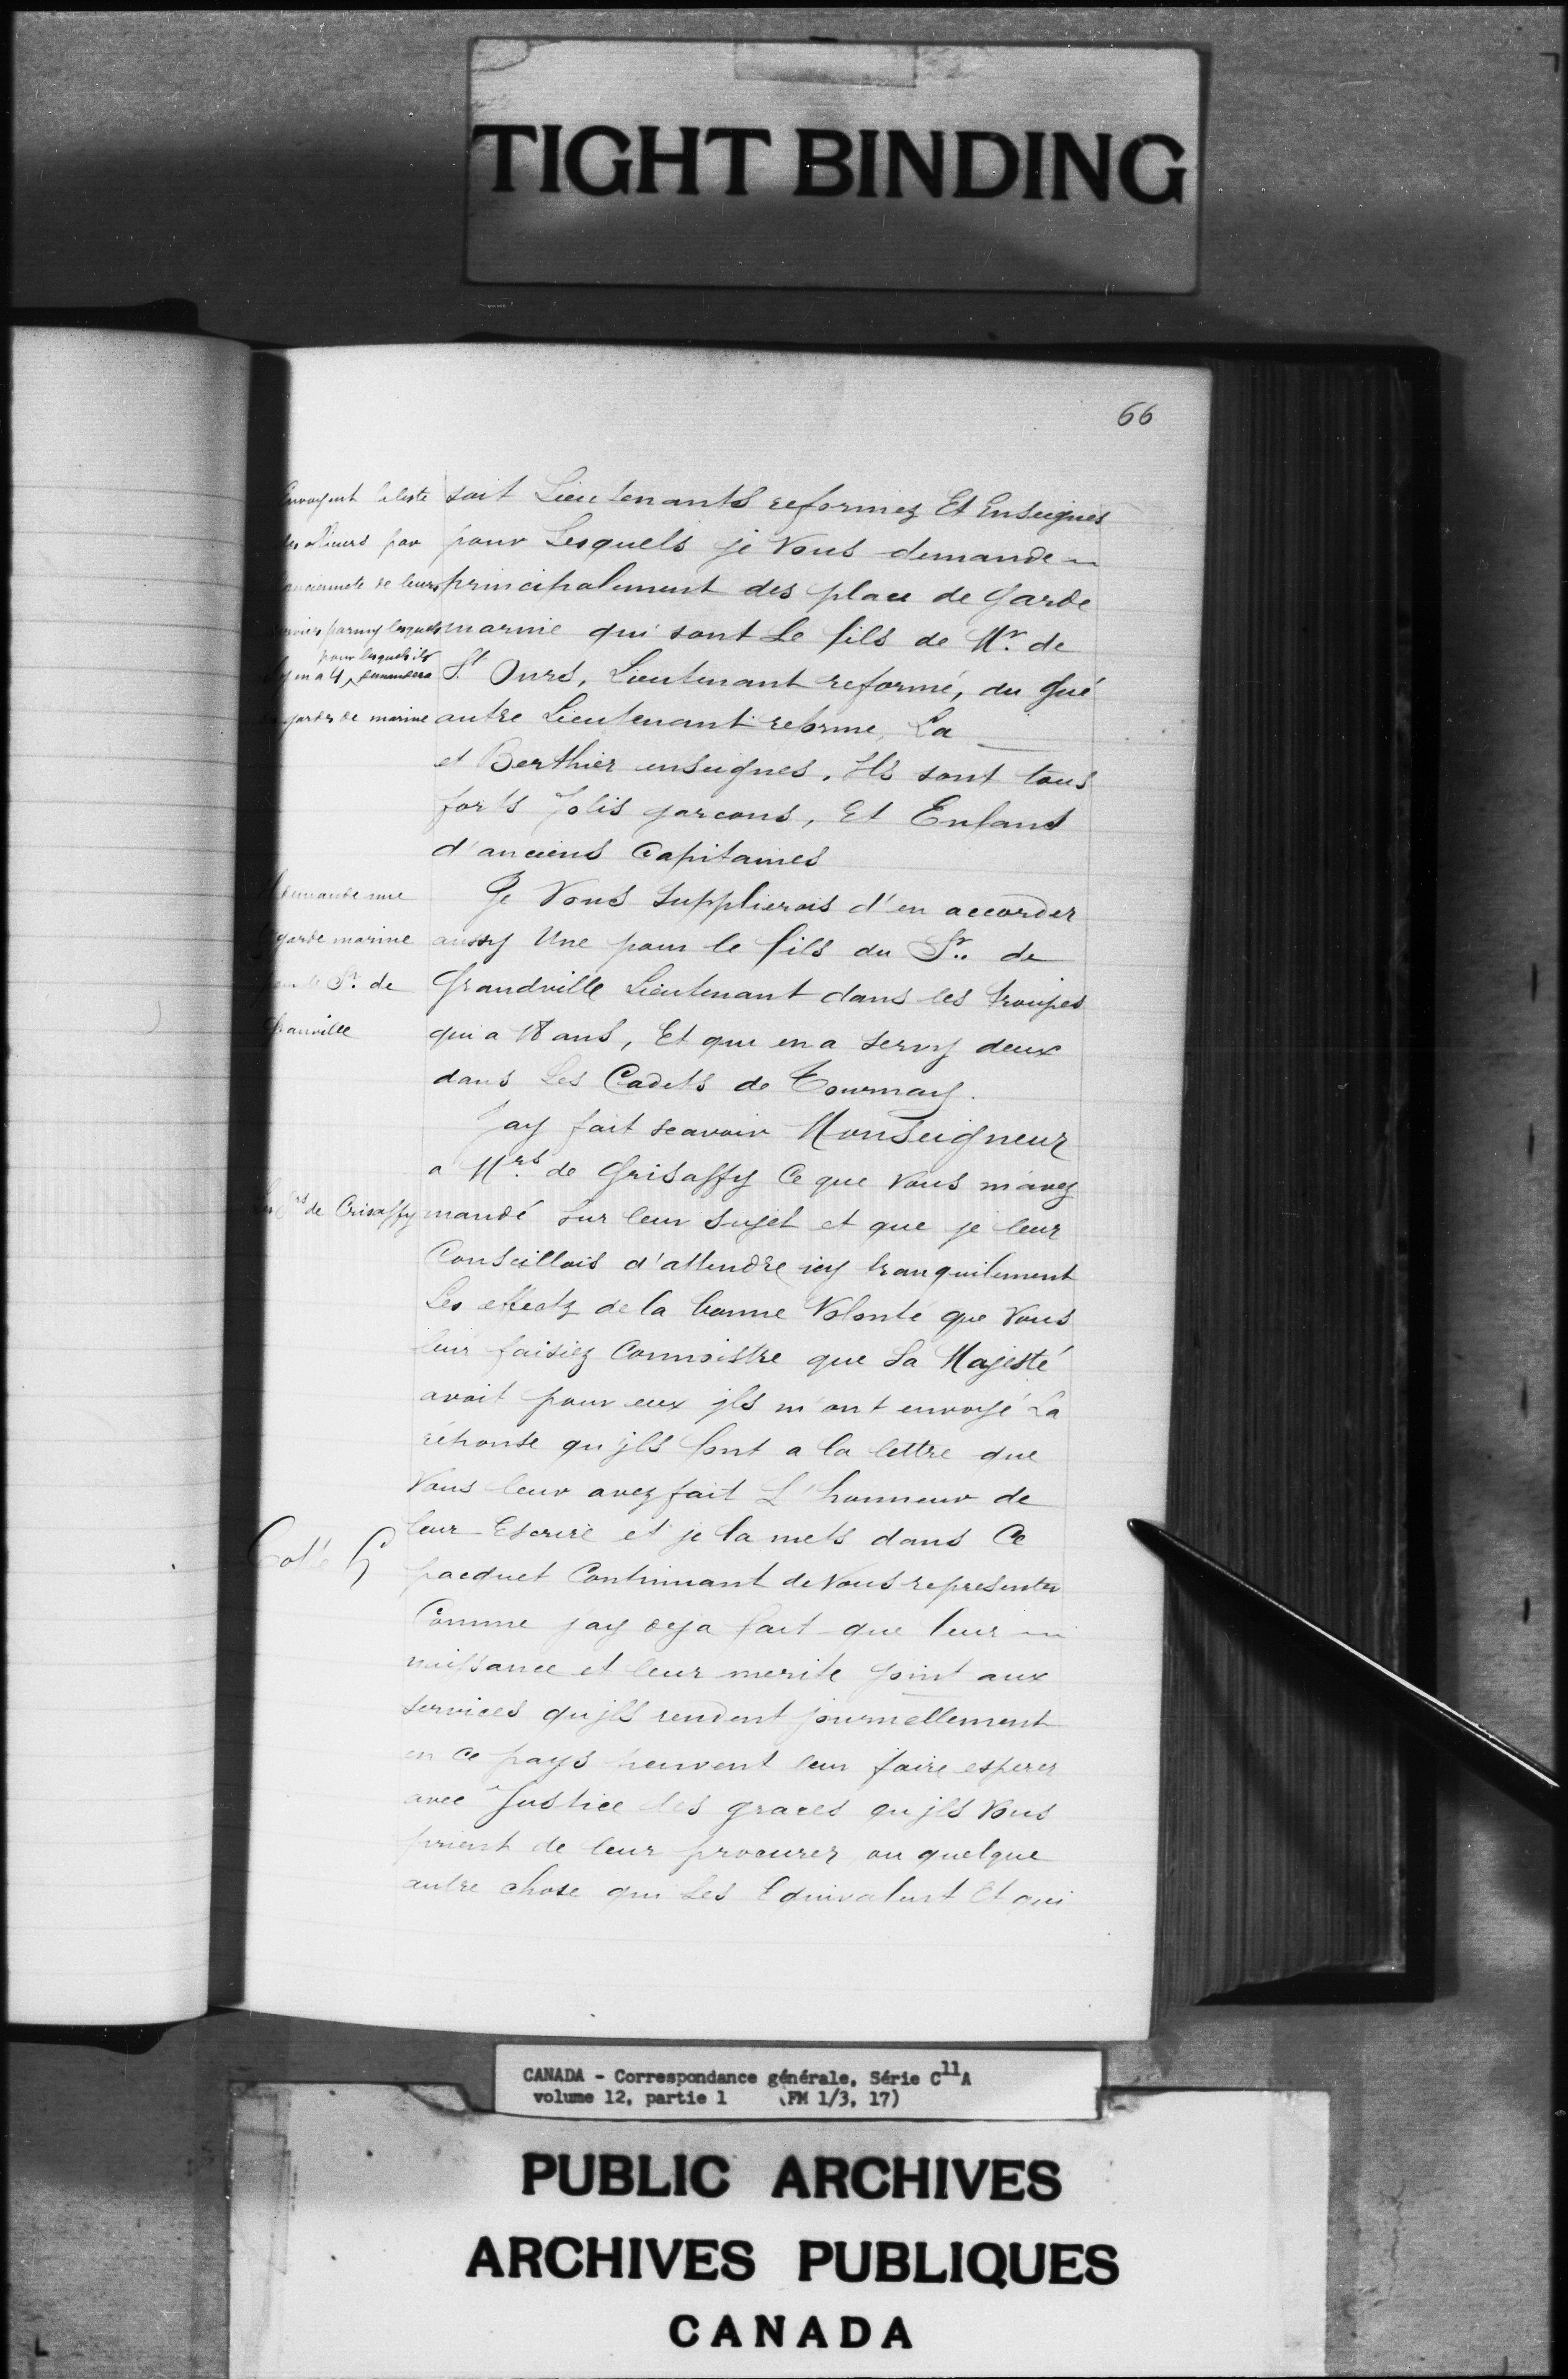 TIGHT BINDING
66
soit Lieutenants reformez Et Enseignes
pour Lesquels je Vous demande
principalement des place de Garde
marine qui sont Le fils de Mr. de
St. Ours, Lieutenant reformé, du Gué
autre Lieutenant reforme, La
et Berthier enseignes. Ils sont tous
forts Jolis garcons, Et Enfans
d'anciens Capitaines
Envoyent la liste
des officiers par
ancienneté de leurs
services parmy lesquels
pour lesquels ils
Il y en a 4 demandera
gardes de marine
Je Vous Supplierois d'en accorder
aussy Une pour le fils du Sr. de
Grandville Lieutenant dans les troupes
qui a 18 ans, Et que en a servy deux
dans Les Cadets de Tournay.
Il demande une
garde marine
pour le Sr. de
Granville
Jay fait scavoir Monseigneur
a Mrs. de Grisaffy Ce que Vous m'avez
mandé Sur leur Sujet et que je leur
Conseillois d'attendre icy tranquilement
Les effectz de la bonne Volonté que Vous
leur faisiez Connoistre que Sa Majesté
avoit pour eux jls m'ont envoyé La
réponse qu'jls font a la lettre que
Vous leur avez fait L'honneur de
leur Escrire et je la mets dans Ce
pacquet Continuant de Vous representer
Comme jay deja fait que leur
naissance et leur merite joint aux
Services qu'jls rendent journellement
en Ce pays peuvent leur faire esperer
avec Justice les graces qu'jls Vous
prient de leur procurer ou quelque
autre chose qui Les Equivalust Et qui
Les Srs. de Crisaffy
Cotté G
CANADA - Correspondance générale, Série C11A
volume 12, partie 1 (FM 1/3, 17)
PUBLIC ARCHIVES
ARCHIVES PUBLIQUES
CANADA